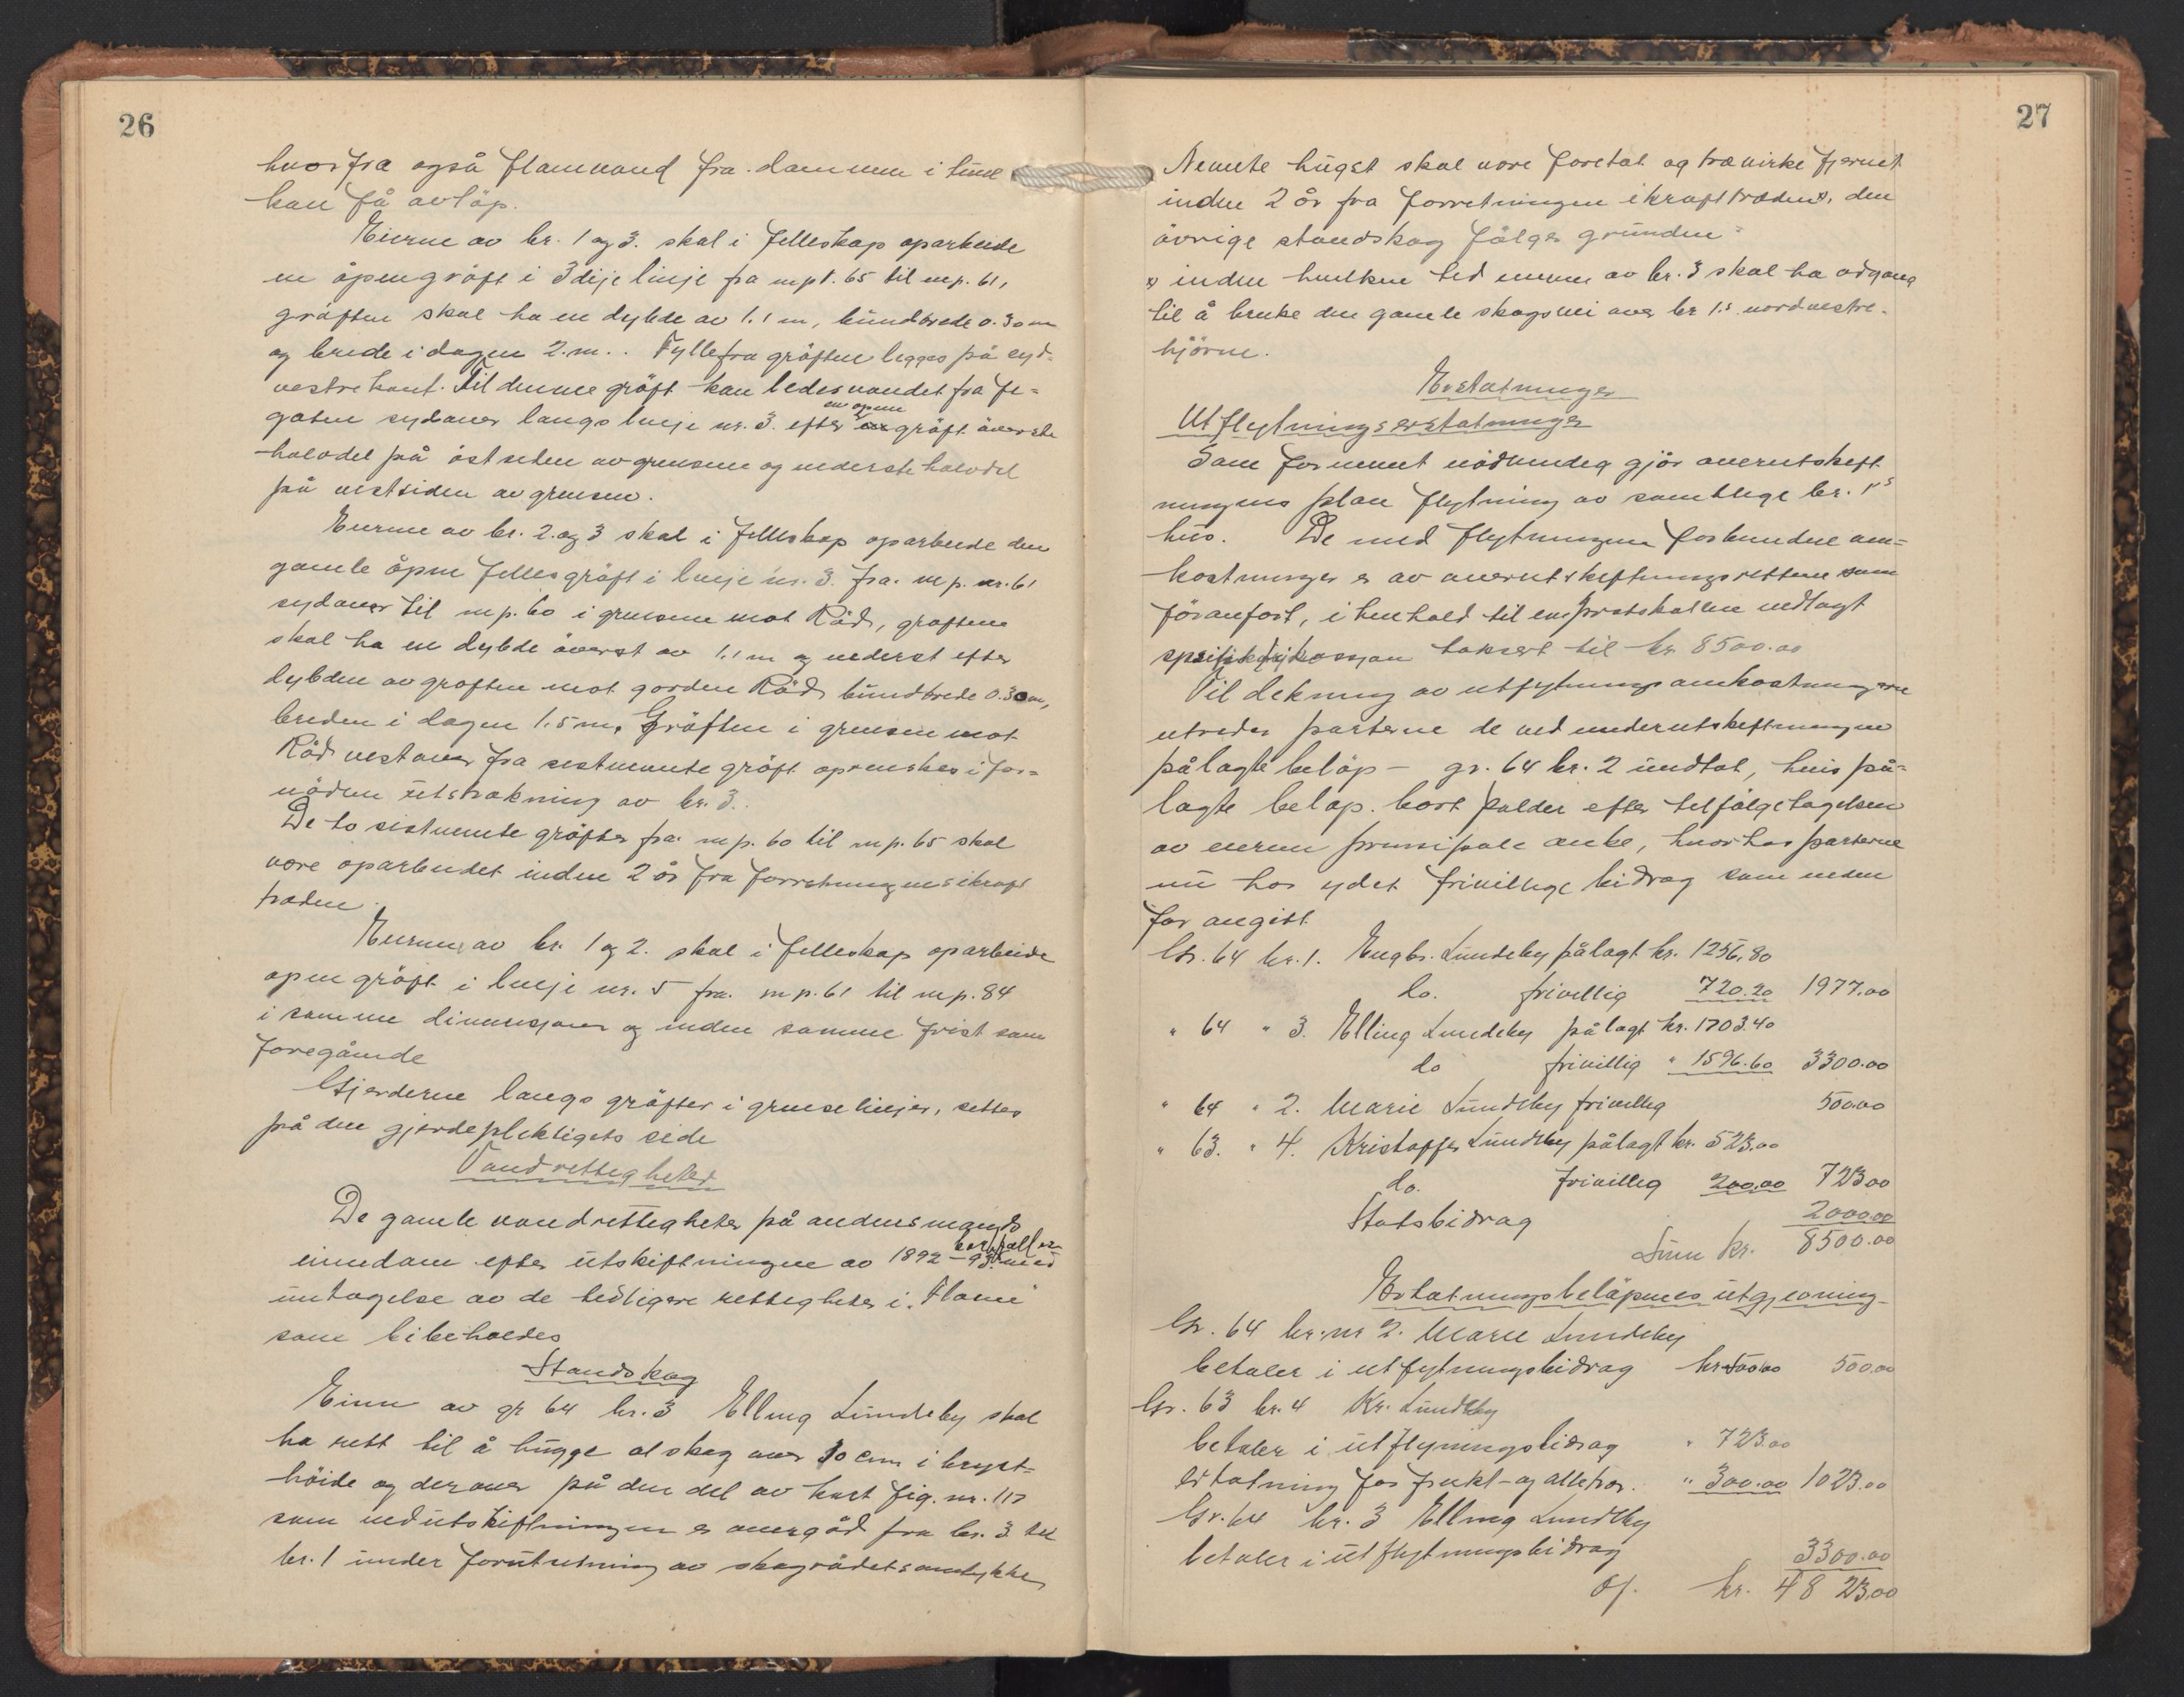 26
hvorfra også flomvand fra dammen i tunet
kan få avløp.
Eierne av br. 1 og 3. skal i felleskap oparbeide
en åpen grøft i 3dije linje fra mpt. 65 til mp. 61,
grøften skal ha en dybde av 1.1 m, bundbrede 0.30 m
og brede i dagen 2.m.. Fylle fra grøften legges på syd-
vestre kant. Til denne grøft kan ledes vandet fra fe-
gaten sydover langs linje nr. 3. efter en open grøft øverste
halvdel på østsiden av grensen og nederste halvdel
på vestsiden av grensen.
Eierne av br. 2. og 3 skal i felleskap oparbeide den
gamle åpne fellesgrøft i linje nr. 3. fra. mp. nr. 61
sydover til mp. 60 i grensene mot Råd, grøftene
skal ha en dybde øverst av 1.1 m og nederst efter
dybden av grøften mot gorden Råd, bundbrede 0.30 m,
breden i dagen 1.5 m. Grøften i grensen mot
Råd vestover fra sistnevnte grøft oprenskes i for-
nøden utstrækning av br. 3.
De to sistnevnte grøfter fra mp. 60 til mp. 65 skal
være oparbeidet inden 2 år fra forretningens ikraft
træden.
Eierne av br. 1 og 2. skal i felleskap oparbeide
open grøft i linje nr. 5 fra. mp. 61 til mp. 84
i samme dimensjoner og inden samme frist som
foregående
Gjerderne langs grøfter i grenselinjer, settes
på den gjerdepliktigets side
Vandrettigheter
De gamle vandrettigheter på andensmands
eiendom efter utskiftningen av 1892-93 bortfaller med
untagelse av de tidligere rettigheter i "Flomi"
som bibeholdes
Standskog
Eieren av gr 64 br. 3 Elling Lundeby skal
ha rett til å hugge al skog over 10 cm i bryst-
høide og derover på den del av kart fig. nr. 117
som ved utskiftningen er overgåd fra br. 3 til
br. 1 under forutsetning av skogrådets samtykke,
27
Nevnte hugst skal være foretat og trævirke fjernet
inden 2 år fra forretningen ikrafttræden x, den
øvrige standskog følger grunden
x inden hvilken tid eieren av br. 3 skal ha adgang
til å bruke den gamle skogsvei over br 1.s nordvestre.
hjørne.
Erstatninger
Utflytningserstatninger
Som før nevnt nødvendig gjør overutskift
ningens plan flytning av samtlige br. 1s
hus. De med flytningen forbundne om-
kostninger er av overutskiftningsretten som
før anført, i henhold til en protokollen vedlagt
takseret til kr 8500.00
Til dekning av utflytningsomkostningerne
utreder parterne de ved underutskiftningen
pålagte beløp - gr. 64 br. 2 undtat, hvis på-
lagte beløp. bort falder efter tilfølgetagelsen
av eieren prinsipale anke, hvorhos parterne
nu har ydet frivillige bidrag som neden
for angitt.
Gr. 64 br. 1. Engbr. Lundeby pålagt kr. 1256,80
do. frivillig 720.20 1977.00
" 64 " 3. Elling Lundeby pålagt kr. 1703.40
do frivillig " 1596.60 3300.00
" 64 " 2. Marie Lundeby frivillig 500.00
" 63. " 4. Kristoffer Lundeby pålagt kr. 523.00
do. frivillig 200.00 723.00
Statsbidrag 2000.00
Sum kr. 8500.00
Erstatningsbeløpenes utgjevning
Gr. 64 br. nr 2. Marie Lundeby
betaler i utflytningsbidrag kr 500.00 500.00
Gr. 63 br. 4 Kr. Lundeby
betaler i utflytningsbidrag " 723.00
erstatning for frukt- og alletrær. " 300.00 1023.00
Gr. 64 br. 3 Elling Lundeby
betaler i utflytningsbidrag 3300.00
Of. kr. 4823.00